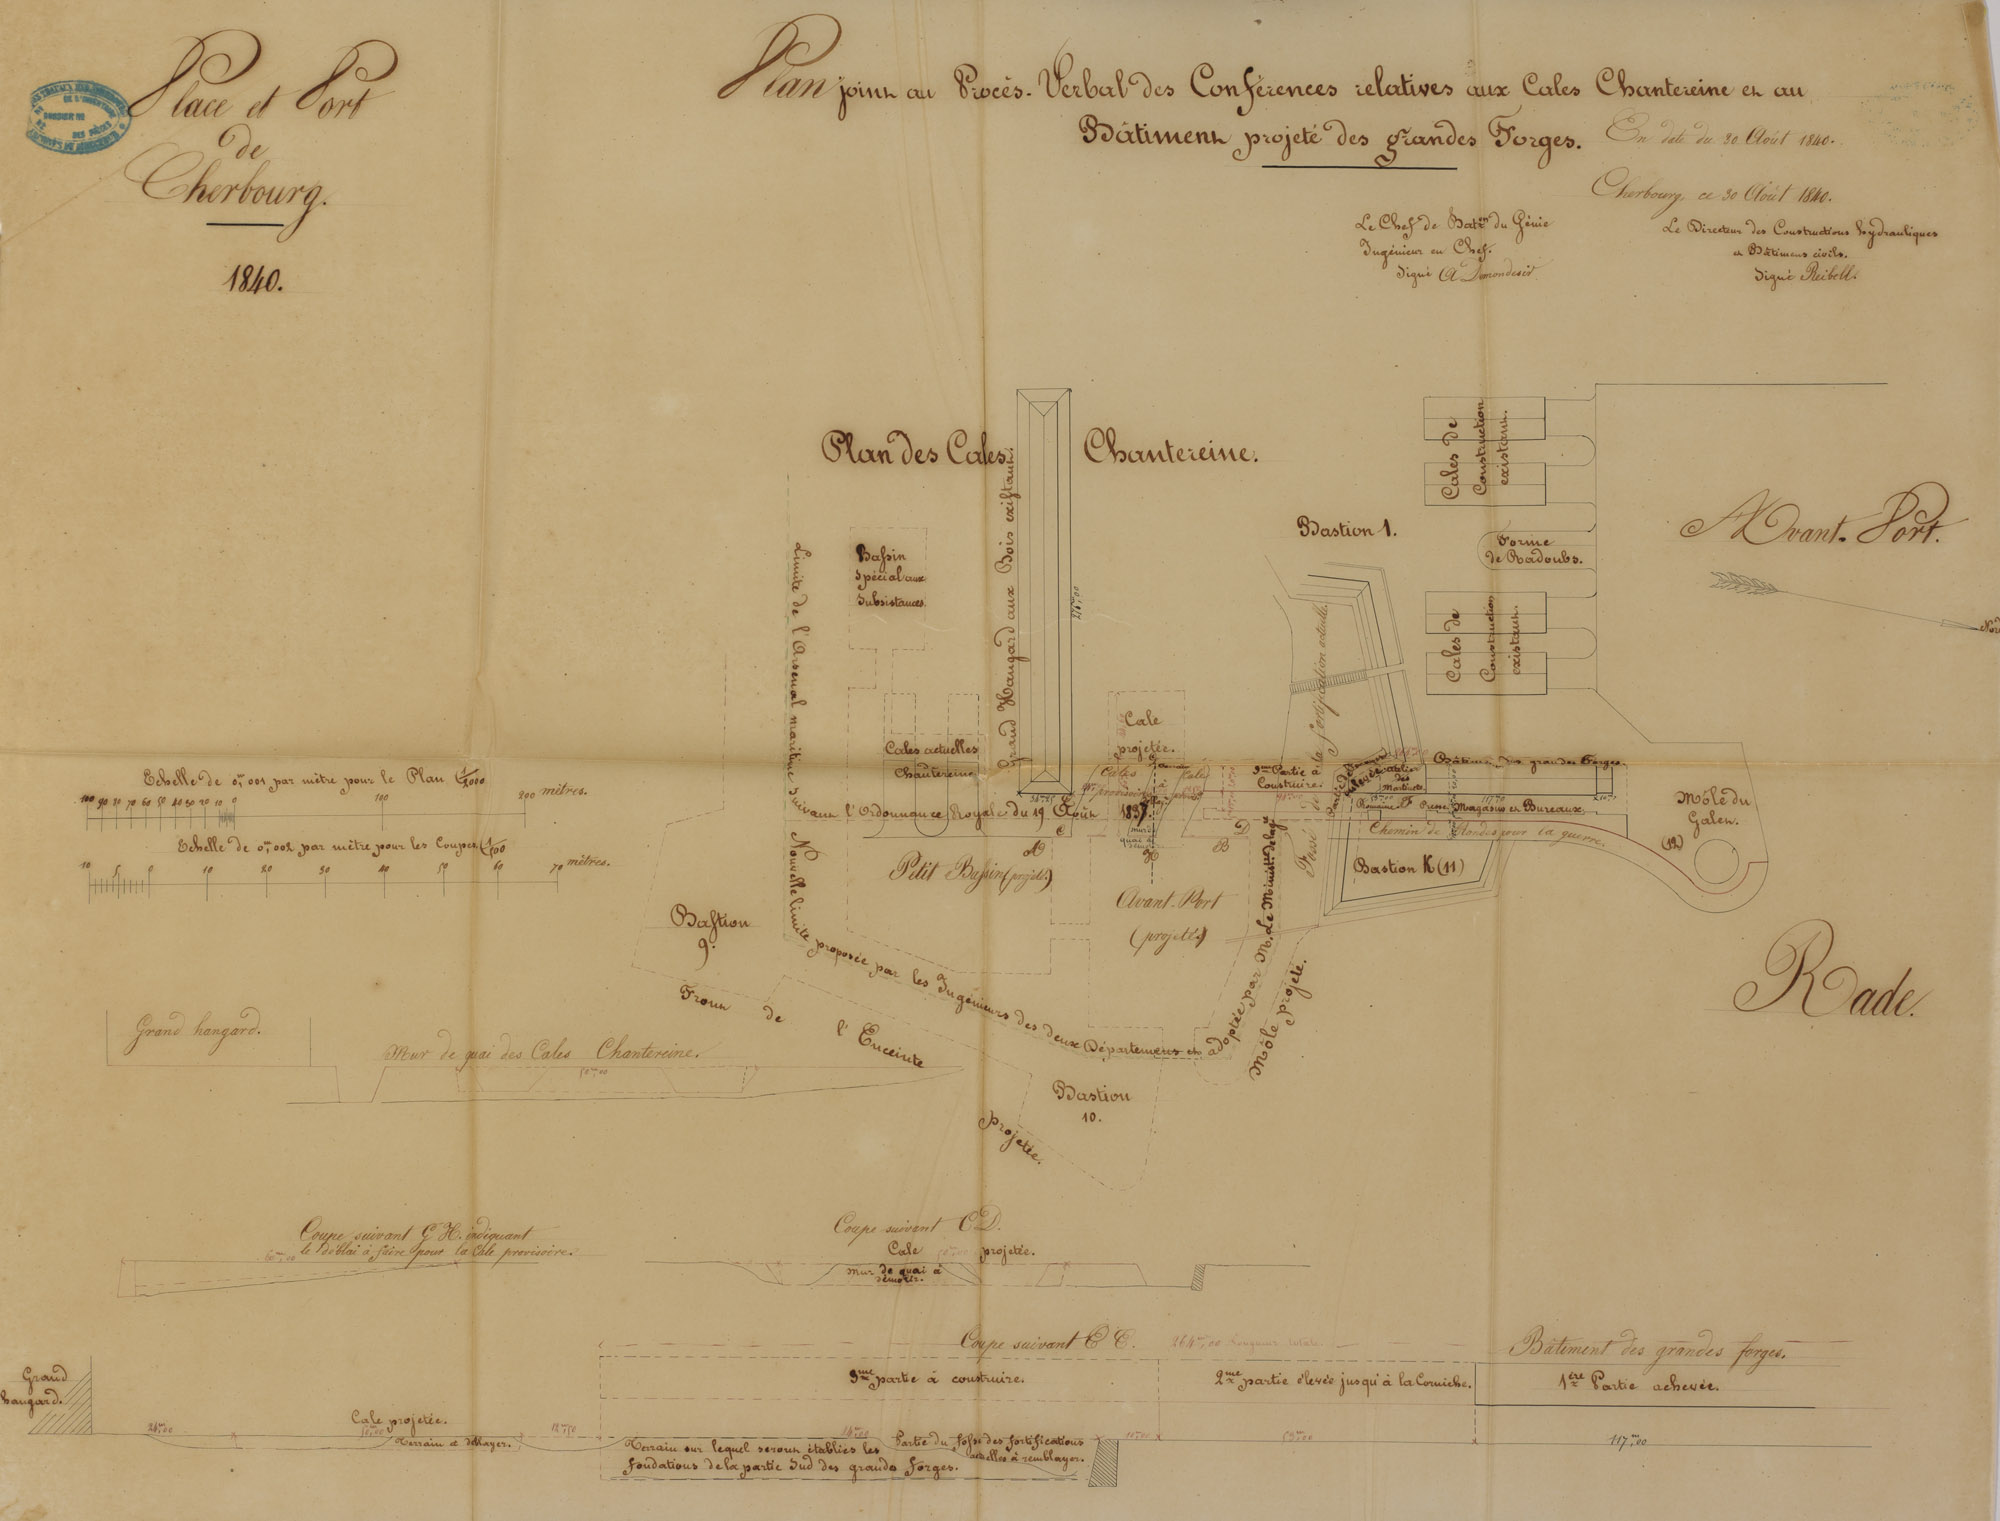 Place et Port
de
Cherbourg.
1840.
Plan joint au Procès-Verbal des Conférences relatives aux Cales Chantereine et au
Bâtiment projeté des grandes Forges.
En date du 30 Août 1840.
Cherbourg, ce 30 Août 1840.
Le Chef de Bat.on du Génie
Ingénieur en Chef.
Signé A Demondesir
Le Directeur des Constructions hydrauliques
et Bâtimens civils.
Signé Reibell.
Plan des Cales Chantereine.
Grand Hangard aux Bois existant.
276m,00
Bassin
Spécial aux
Subsistances
Limite de l'Arsenal maritime suivant l'Ordonnance Royale du 19 Août 1837.
Nouvelle limite proposée par les Ingénieurs des deux Départemens et adoptée par M. Le Ministre de la gre
Bastion 1.
Cales de
Construction
existant.
Forme
de Radoubs.
Cales de
Construction
existant.
Avant-Port.
Nord
Cales actuelles
Chantereine
Cale
projetée.
Cales
provisoires
Cale
3me Partie à
Construire.
Fossé de la fortification actuelle.
atelier
des
Martinets
Bâtiment des grandes Forges
Magasins et Bureaux.
Chemin de Rondes pour la guerre.
Bastion K (11)
Môle du
Galet.
(12)
Petit Bassin (projeté)
A
B
C
D
Avant-Port
(projeté)
Môle projeté.
Rade.
Bastion
9.
Front de l'Enceinte Projetée.
Bastion
10.
Echelle de 0m,001 par mètre pour le Plan 1/1000
100 90 80 70 60 50 40 30 20 10 0 100 200 mètres.
Echelle de 0m,002 par mètre pour les Coupes 1/500
10 5 0 10 20 30 40 50 60 70 mètres.
Grand hangard.
Mur de quai des Cales Chantereine.
50m,00
Coupe suivant G H. indiquant
le déblai à faire pour la Cale provisoire.
60m,00
Coupe suivant C D.
Cale projetée.
Mur de quai à
démolir.
Coupe suivant E E.
264m,00 Longueur totale.
Bâtiment des grandes forges.
3me partie à construire.
2me partie élevée jusqu'à la Corniche.
1ère Partie achevée.
Grand
hangard.
Cale projetée.
Terrain à déblayer.
Terrain sur lequel seront établies les
fondations de la partie Sud des grandes forges.
Partie du fossé des fortifications
actuelles à remblayer.
117m,00